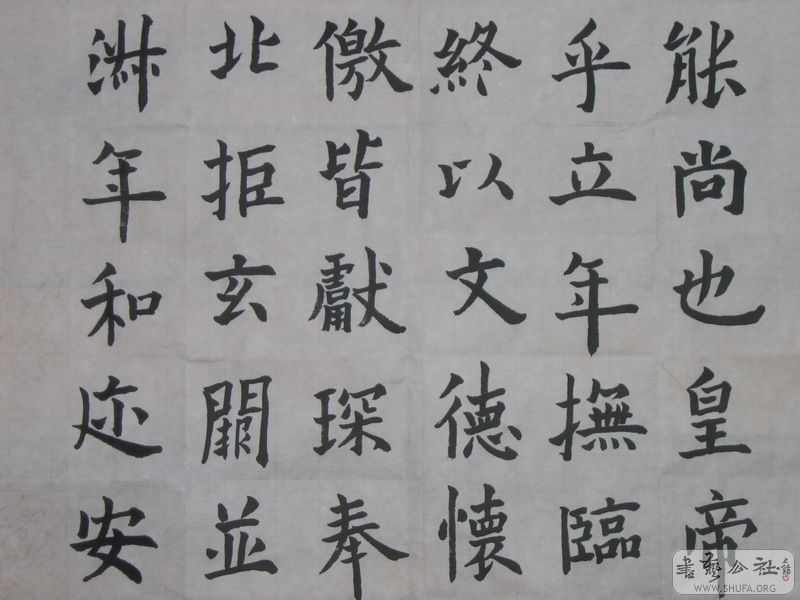 能尚也皇帝
乎立年撫臨
終以文德懷
儌皆獻琛奉
北拒玄闕並
淑年和迩安
書藝公社
WWW.SHUFA.ORG